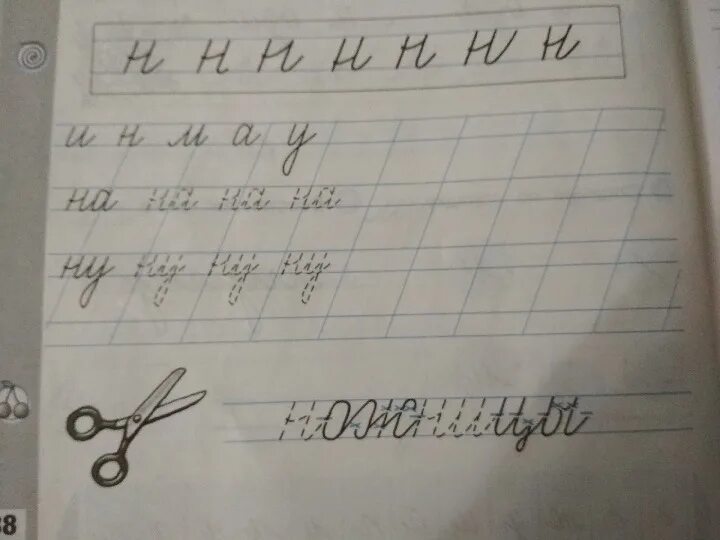 н н н н н н н
и н м а у
на на на на
ну ну ну ну
ножницы
38